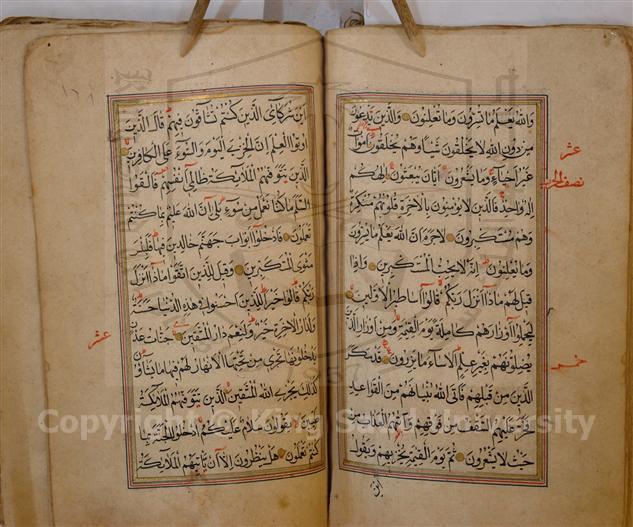 والله يعلم ما تسرون وما تعلنون والذين يدعون
من دون الله لا يخلقون شيئا وهم يخلقون اموات
غير احياء وما يشعرون ايان يبعثون الهكم
اله واحد فالذين لا يؤمنون بالآخرة قلوبهم منكرة
وهم مستكبرون لا جرم ان الله يعلم ما يسرون
وما يعلنون انه لا يحب المستكبرين واذا
قيل لهم ماذا انزل ربكم قالوا اساطير الاولين
ليحملوا اوزارهم كاملة يوم القيمة ومن اوزار الذين
يضلونهم بغير علم الا ساء ما يزرون قد مكر
الذين من قبلهم فاتى الله بنيانهم من القواعد
فخر عليهم السقف من فوقهم واتيهم العذاب من
حيث لا يشعرون ثم يوم القيمة يخزيهم ويقول
عشر
نصف الحزب
خمس
اين
اين شركائ الذين كنتم تشاقون فيهم قال الذين
اوتوا العلم ان الخزي اليوم والسوء على الكافرين
الذين تتوفيهم الملايكة ظالمي انفسهم فالقوا
السلم ما كنا نعمل من سوء بلى ان الله عليم بما كنتم
تعملون فادخلوا ابواب جهنم خالدين فيها فلبئس
مثوى المتكبرين وقيل للذين اتقوا ماذا انزل
ربكم قالوا خيرا للذين احسنوا في هذه الدنيا حسنة
ولدار الآخرة خير ولنعم دار المتقين جنات عدن
يدخلونها تجري من تحتها الانهار لهم فيها ما يشاؤن
كذلك يجزي الله المتقين الذين تتوفيهم الملايكة
طيبين يقولون سلام عليكم ادخلوا الجنة بما
كنتم تعملون هل ينظرون الا ان تأتيهم الملايكة
عشر
Copyright © King Saud University